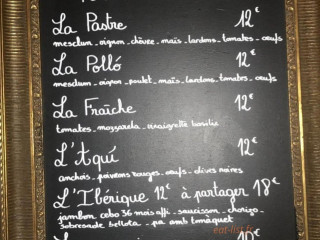 La Pastre 12€
mesclum_oignon_chèvre_maïs_lardons_tomates_oeufs
La Polló 12€
mesclum_oignon_poulet_maïs_lardons_tomates_oeufs
La Fraîche 12€
tomates_mozzarela_vinaigrette basilic
L'Aqui 12€
anchois_poivrons rouges_oeufs_olives noires
L'Ibérique 12€ à partager 18€
jambon cebo 36 mois affi_saucisson_chorizo_
sobresade bellota_pa amb tomàquet
eat-list.fr